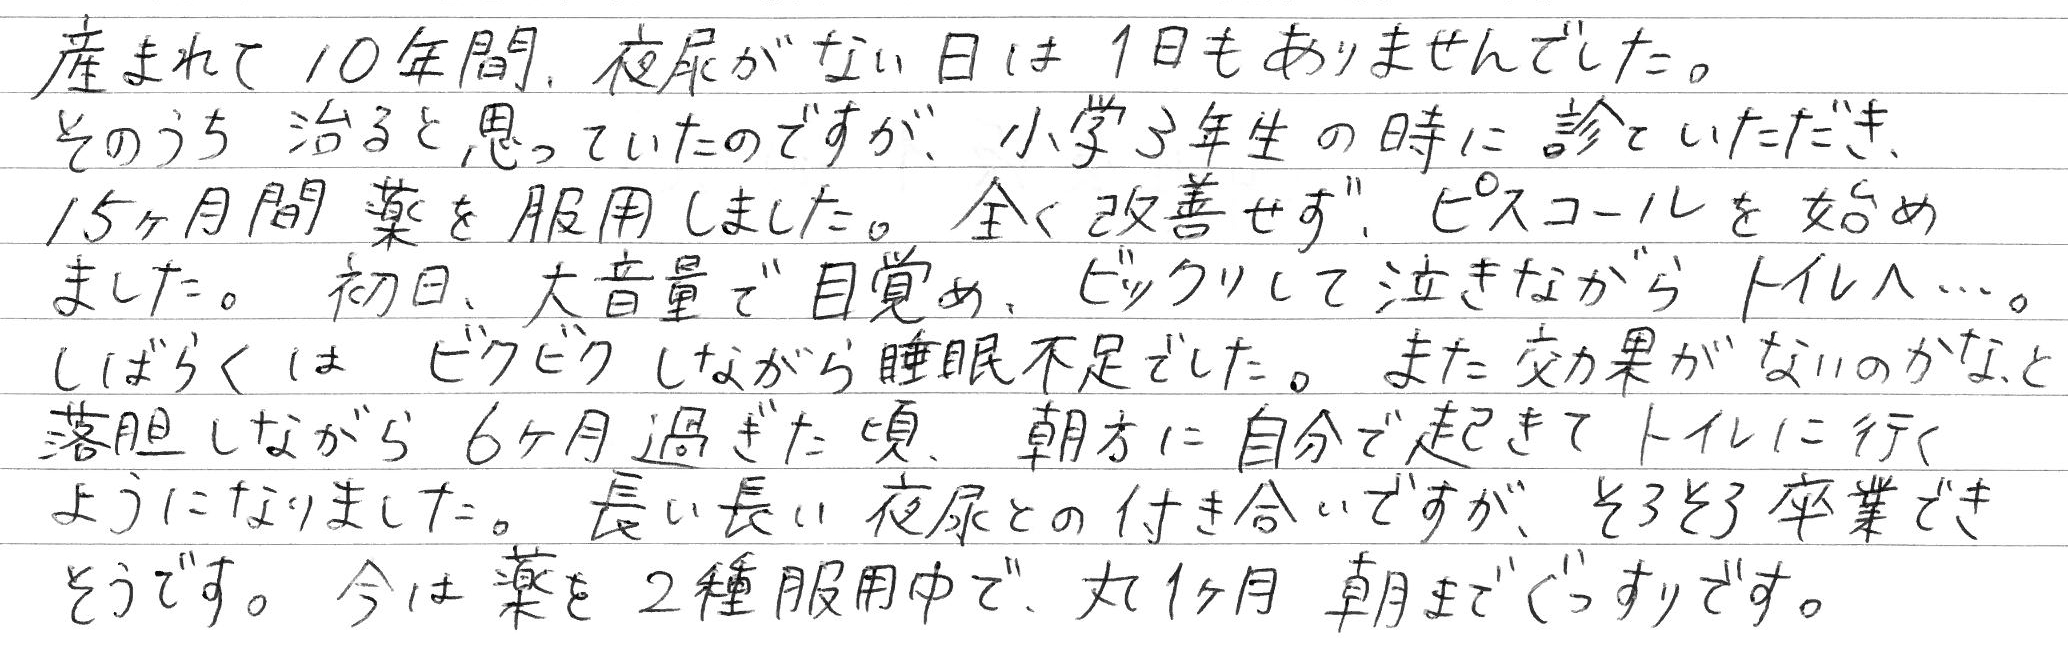 産まれて10年間、夜尿がない日は1日もありませんでした。
そのうち治ると思っていたのですが、小学3年生の時に診ていただき、
15ヶ月間薬を服用しました。全く改善せず、ピスコールを始め
ました。初日、大音量で目覚め、ビックリして泣きながらトイレへ…。
しばらくはビクビクしながら睡眠不足でした。また効果がないのかな、と
落胆しながら6ヶ月過ぎた頃、朝方に自分で起きてトイレに行く
ようになりました。長い長い夜尿との付き合いですが、そろそろ卒業でき
そうです。今は薬を2種服用中で、丸1ヶ月朝までぐっすりです。